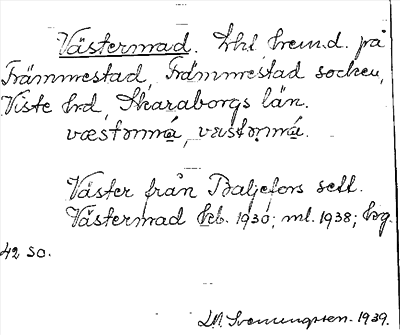 Västermad. hhl hemd. på
Främmestad, Främmestad socken,
Viste hrd, Skaraborgs län.
væstərma, væstərma.
Väster från Baljefors sett.
Västermad keb. 1930; ml. 1938; hg.
42 so.
Svenungsson. 1939.